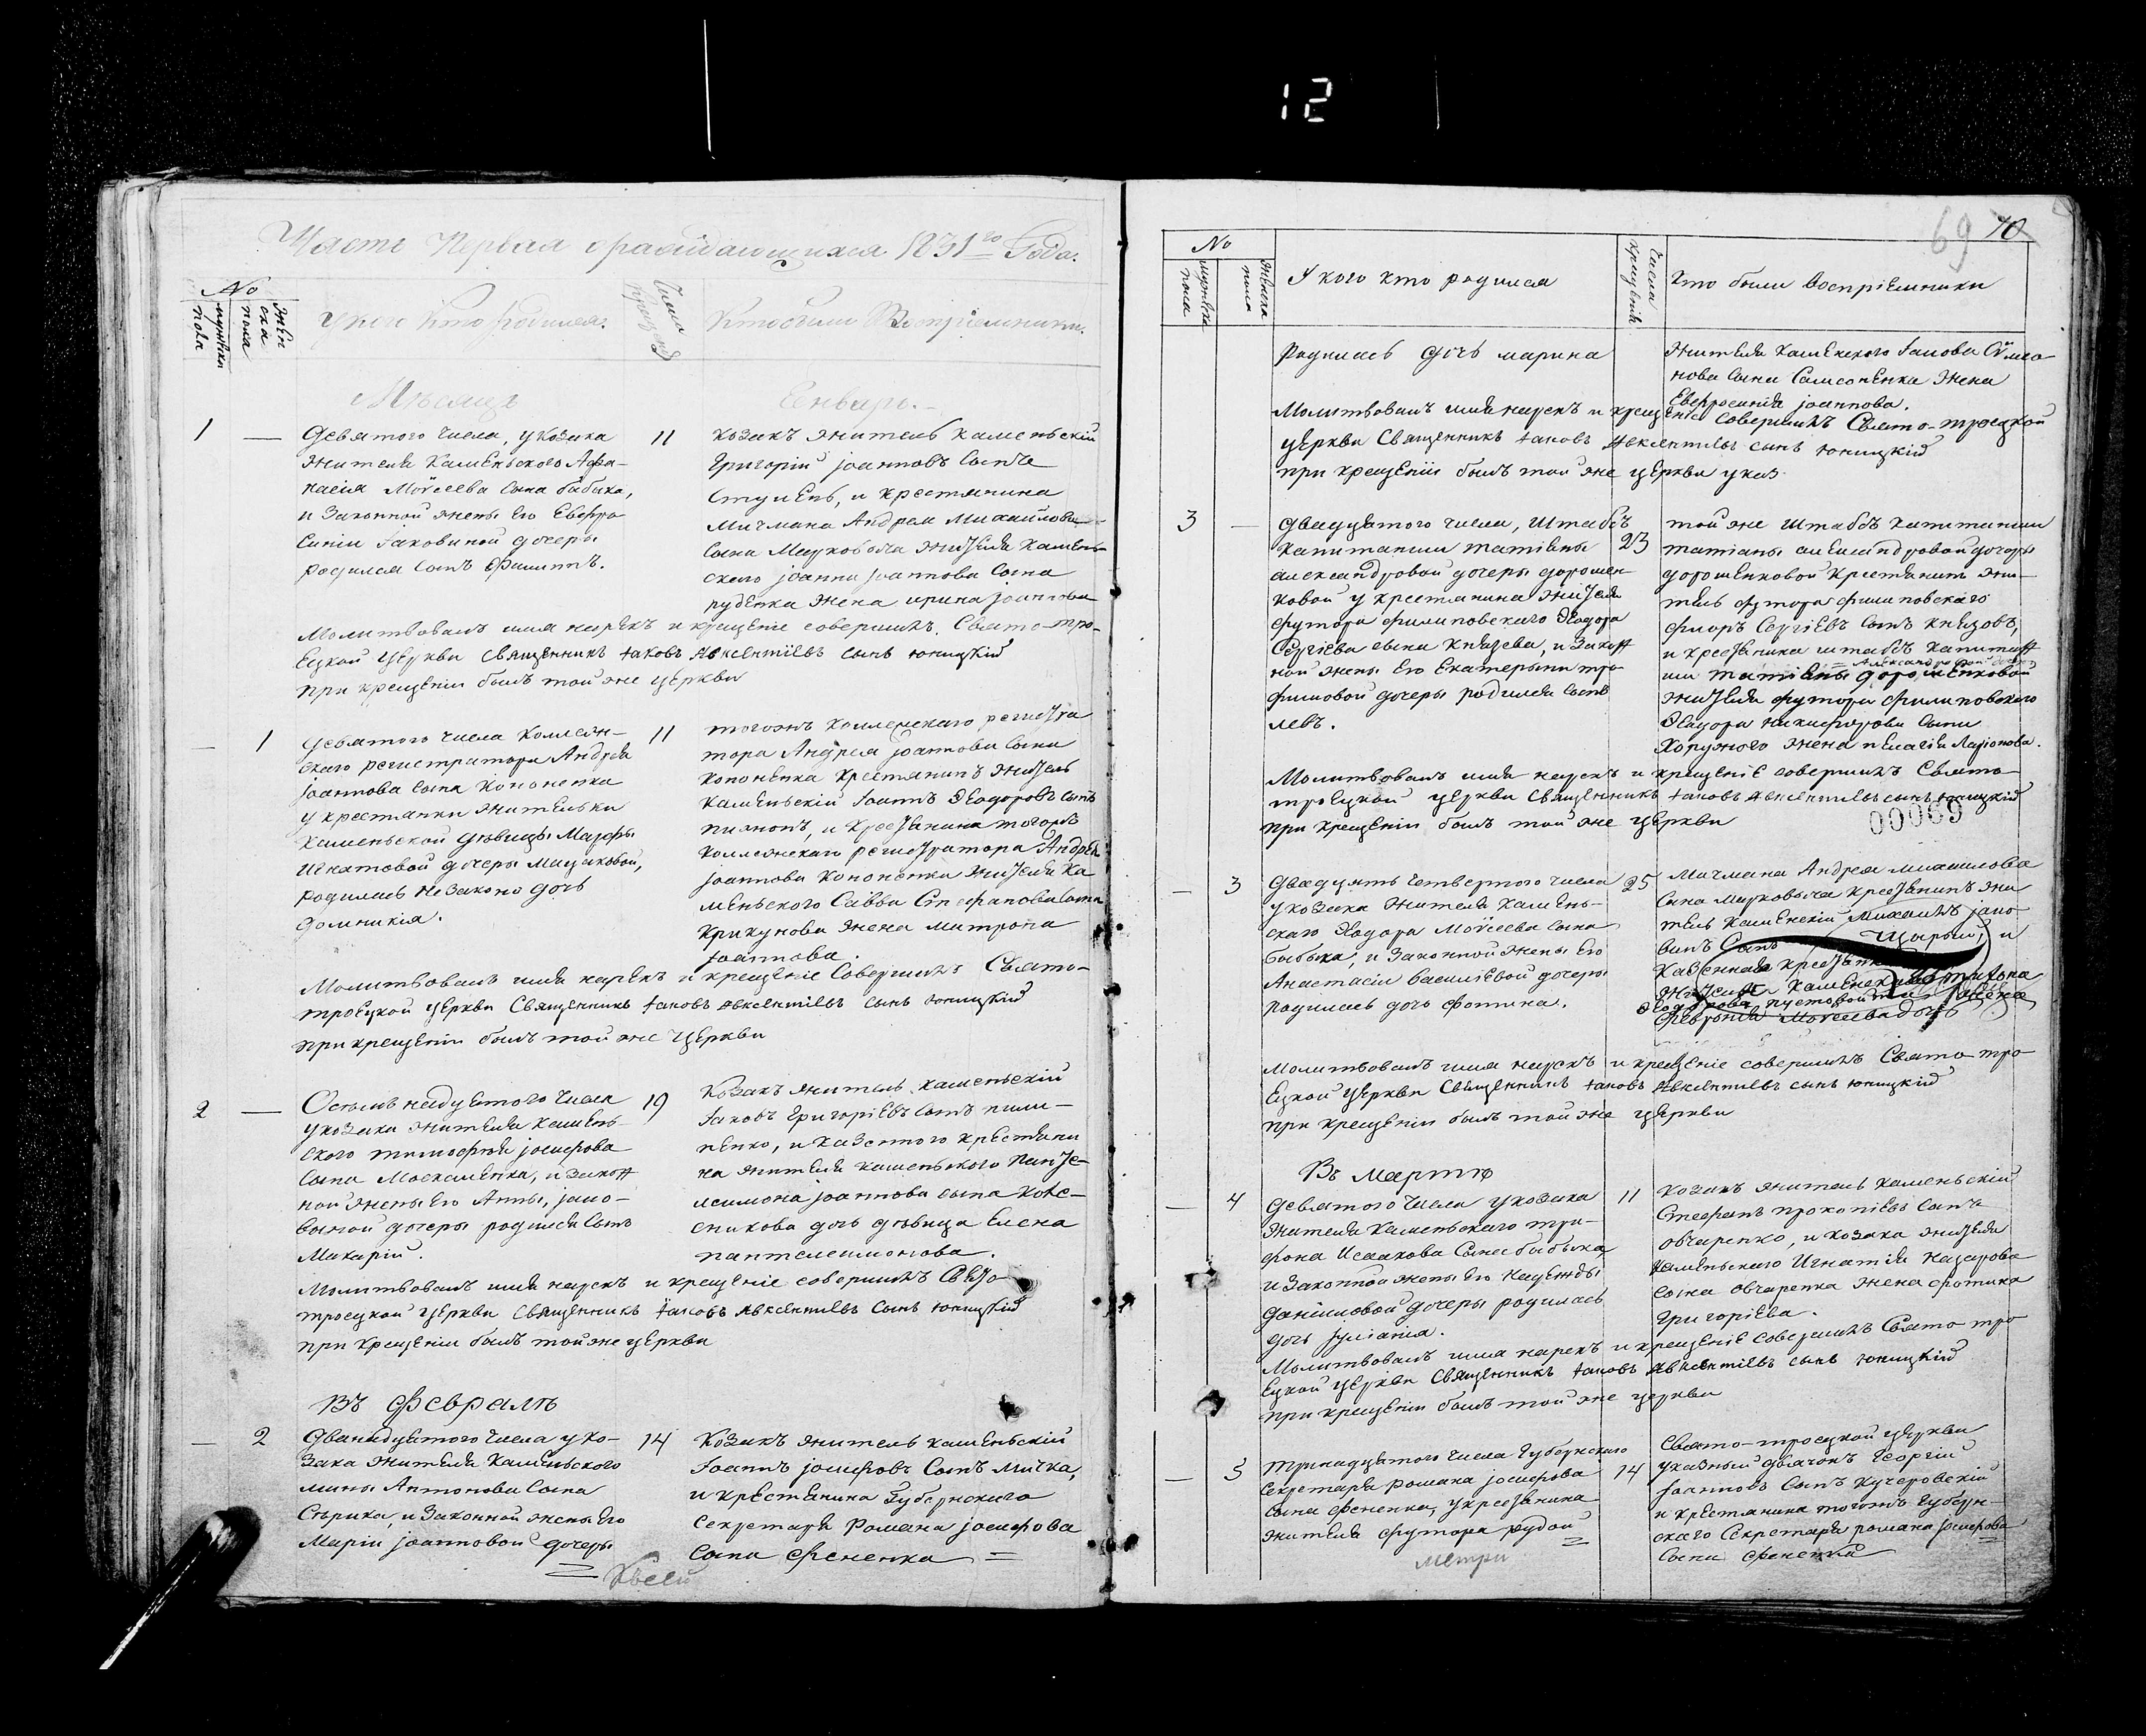 12
Часть Первая о раждающихся 1831го Года.
No
мужеска пола
женска пола
У кого Кто родился.
Числа крещенія
Кто были Воспріемники.
Мѣсяцъ Генварь.
1 — Девятого числа, у козака
жителя Каменьского Афа-
насія Моѵсеева сына бабыка,
и законной жены Его Евфро-
синіи Іаковиной дочери
родился сынъ Филиппъ.
11
Козакъ житель Каменьскій
Григорій Іоанновъ сынъ
и крестянина
Мичмана Андрея Михайлова
сына Марковича жителя Камень-
ского Іоанна Іоаннова сына
руденка жена ирина Іоаннова
Молитвовалъ имя нарекъ и крещеніе совершилъ Свято-тро-
ецкой Церкви Священникъ Іаковъ Авксентіевъ сынъ Юницкій
при крещеніи былъ той же церкви
— 1 Девятого числа Коллеж-
ского регистратора Андрея
Іоаннова сына Кононенка
у крестянки жительки
Каменьской девицы Марфы
Игнатовой дочери Мацаковой,
родилась незаконо дочь
Домникія.
11
тогожъ Коллежскаго регистра
тора Андрея Іоаннова сына
Кононенка Крестянинъ житель
Каменьскій Іоаннъ Ѳеодоровъ сынъ
и крестянина тогожъ
Коллежскаго регистратора Андрея
Іоаннова Кононенка жителя Ка
меньского Саввы Стефанова сына
Крикунова жена Матрона
Іоаннова.
Молитвовалъ имя нарекъ и крещеніе Совершилъ Свято-
троецкой Церкви Священникъ Іаковъ Авксентіевъ сынъ Юницкій
при крещеніи былъ той же Церкви
2 — Осьмнадцятого числа
у козака жителя Камень-
ского тимофея Іосифова
сына Москаленка, и закон
ной жены Его Анны, Іако-
вовой дочери родился сынъ
Макарій.
19
Козакъ житель Каменьскій
Іаковъ Григоріевъ сынъ пили-
пенко, и казенного крестяни
на жителя каменьского Панте-
леимона Іоаннова сына
дочь девица Елена
пантелеимонова.
Молитвовалъ имя нарекъ и крещеніе совершилъ Свято
троецкой церкви Священникъ Іаковъ Авксентіевъ Сынъ Юницкій
при крещеніи былъ той же церкви
Въ Февралѣ
— 2 Дванадцятого числа у ко-
зака жителя Каменьского
мины Антонова сына
Сѣрика, и законной жены Его
Маріи Іоанновой дочери
14
Козакъ житель каменьскій
Іоаннъ Іосифовъ Сынъ Мичка,
и крестянина Губернского
Секретаря Романа Іосифова
сына Фененка
69 70
No
мужеска пола
женска пола
У кого кто родился
Числа крещенія
Кто были воспріемники
родилась дочь марина
жителя каменского Іакова
нова сына Самсоненка жена
Евфросинія Іоаннова.
Молитвовалъ имя нарекъ и крещеніе совершилъ Свято-троецкой
церкви Священникъ Іаковъ Авксентіевъ сынъ Юницкій
при крещеніи былъ той же церкви указ
3 — Двадцятого числа, Штабсъ
капитанши татіаны
александровой дочери дорошен-
ковой у крестянина жителя
футора филиповского Ѳеодора
Сергіева сына Князева, и закон
ной жены Его Екатерины тро-
фимовой дочери родился сынъ
левъ.
23
той же штабсъ капитанши
татіаны александровой дочери
дорошенковой крестянинъ жи-
тель футора филиповскаго
флоръ Сергіевъ сынъ князовъ,
и крестянина штабсъ капитан
Александровой дочери
ши татіаны дорошенковой
жителя футора филиповского
Ѳеодора никифорова сына
Хоружного жена пелагія Ларіонова.
Молитвовалъ имя нарекъ и крещеніе совершилъ Свято
троецкой церкви Священникъ Іаковъ Авксентіевъ сынъ Юницкій
при крещеніи былъ той же церкви
00069
— 3 Двадцять четвертого числа
у козака жителя камень-
скаго Ѳеодора Моѵсеева сына
бабыка, и законной жены Его
Анастасіи василіевой дочери
родилась дочь фотина.
25
Мичмана Андрея михаилова
сына Марковича крестянинъ жи
тель Каменскій Михаилъ Іако-
винъ Сынъ Щирый, и
Казенная крестянка
Ѳеодорова пустовой жена
Февронія Моѵсеева дочь
Молитвовалъ имя нарекъ и крещеніе совершилъ Свято тро
ецкой церкви Священникъ Іаковъ Авксентіевъ сынъ Юницкій
при крещеніи былъ той же церкви
Въ мартѣ
— 4 Девятого числа у козака
жителя Каменьскаго три-
фона Исаакова Сына бабыка,
и законной жены Его Надежды
даниловой дочери родилась
дочь Іуліанія.
11
Козакъ житель Каменьскій
Стефанъ прокопіевъ сынъ
овчаренко, и козака жителя
каменьского Игнатія назарова
сына овчаренка жена фотина
григоріева.
Молитвовалъ имя нарекъ и крещеніе совершилъ Свято тро
ецкой церкви Священникъ Іаковъ Авксентіевъ сынъ Юницкій
при крещеніи былъ той же церкви
— 5 тринадцятого числа Губернскаго
Секретаря романа Іосифова
сына фененка, у крестянина
жителя футора рудой
14
Свято-троецкой церкви
указный дьячокъ Георгій
Іоанновъ Сынъ Кучеровскій
и крестянина тогожъ губерн-
скаго Секретаря романа Іосифова
сына фененка
метри